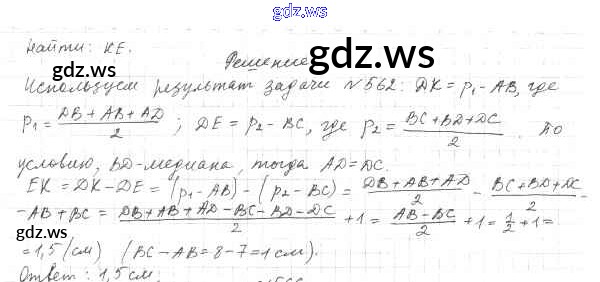 gdz.ws
Найти: KE.
gdz.ws
Решение
gdz.ws
Используем результат задачи №562: DK = p₁ - AB, где
p₁ = (DB + AB + AD)/2 ; DE = p₂ - BC, где p₂ = (BC + BD + DC)/2 . По
gdz.ws
условию, BD-медиана, тогда AD = DC.
EK = DK - DE = (p₁ - AB) - (p₂ - BC) = (DB + AB + AD)/2 - (BC + BD + DC)/2 -
- AB + BC = (DB + AB + AD - BC - BD - DC)/2 + 1 = (AB - BC)/2 + 1 = 1/2 + 1 =
gdz.ws
= 1,5 (см) (BC - AB = 8 - 7 = 1 см).
gdz.ws
Ответ: 1,5 см.